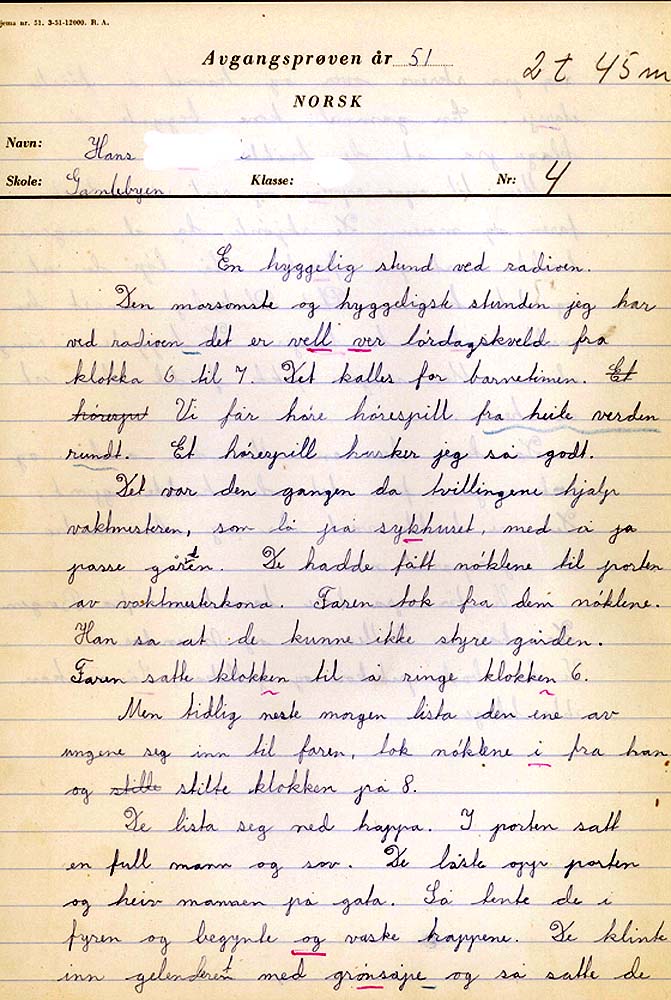 jema nr. 51. 3-51-12000. R. A.
Avgangsprøven år 51
2 t 45 m
NORSK
Navn: Hans
Skole: Gamlebyen Klasse: Nr: 4
En hyggelig stund ved radioen.
Den morsomste og hyggeligste stunden jeg har
ved radioen det er vell ver lördagskveld fra
klokka 6 til 7. Det kalles for barnetimen. Et
hörespill Vi får höre hörespill fra heile verden
rundt. Et hörespill husker jeg så godt.
Det var den gangen da tvillingene hjalp
vaktmesteren, som lå på sykhuset, med å på
passe gården. De hadde fått nöklene til porten
av vaktmesterkona. Faren tok fra dem nöklene.
Han sa at de kunne ikke styre gården.
Faren satte klokken til å ringe klokken 6.
Men tidlig neste morgen lista den ene av
ungene seg inn til faren, tok nöklene i fra han
og stille stilte klokken på 8.
De lista seg ned trappa. I porten satt
en full mann og sov. De låste opp porten
og heiv mannen på gata. Så tente de i
fyren og begynte og vaske trappene. De klinte
inn gelenderet med grönsåpe og så satte de